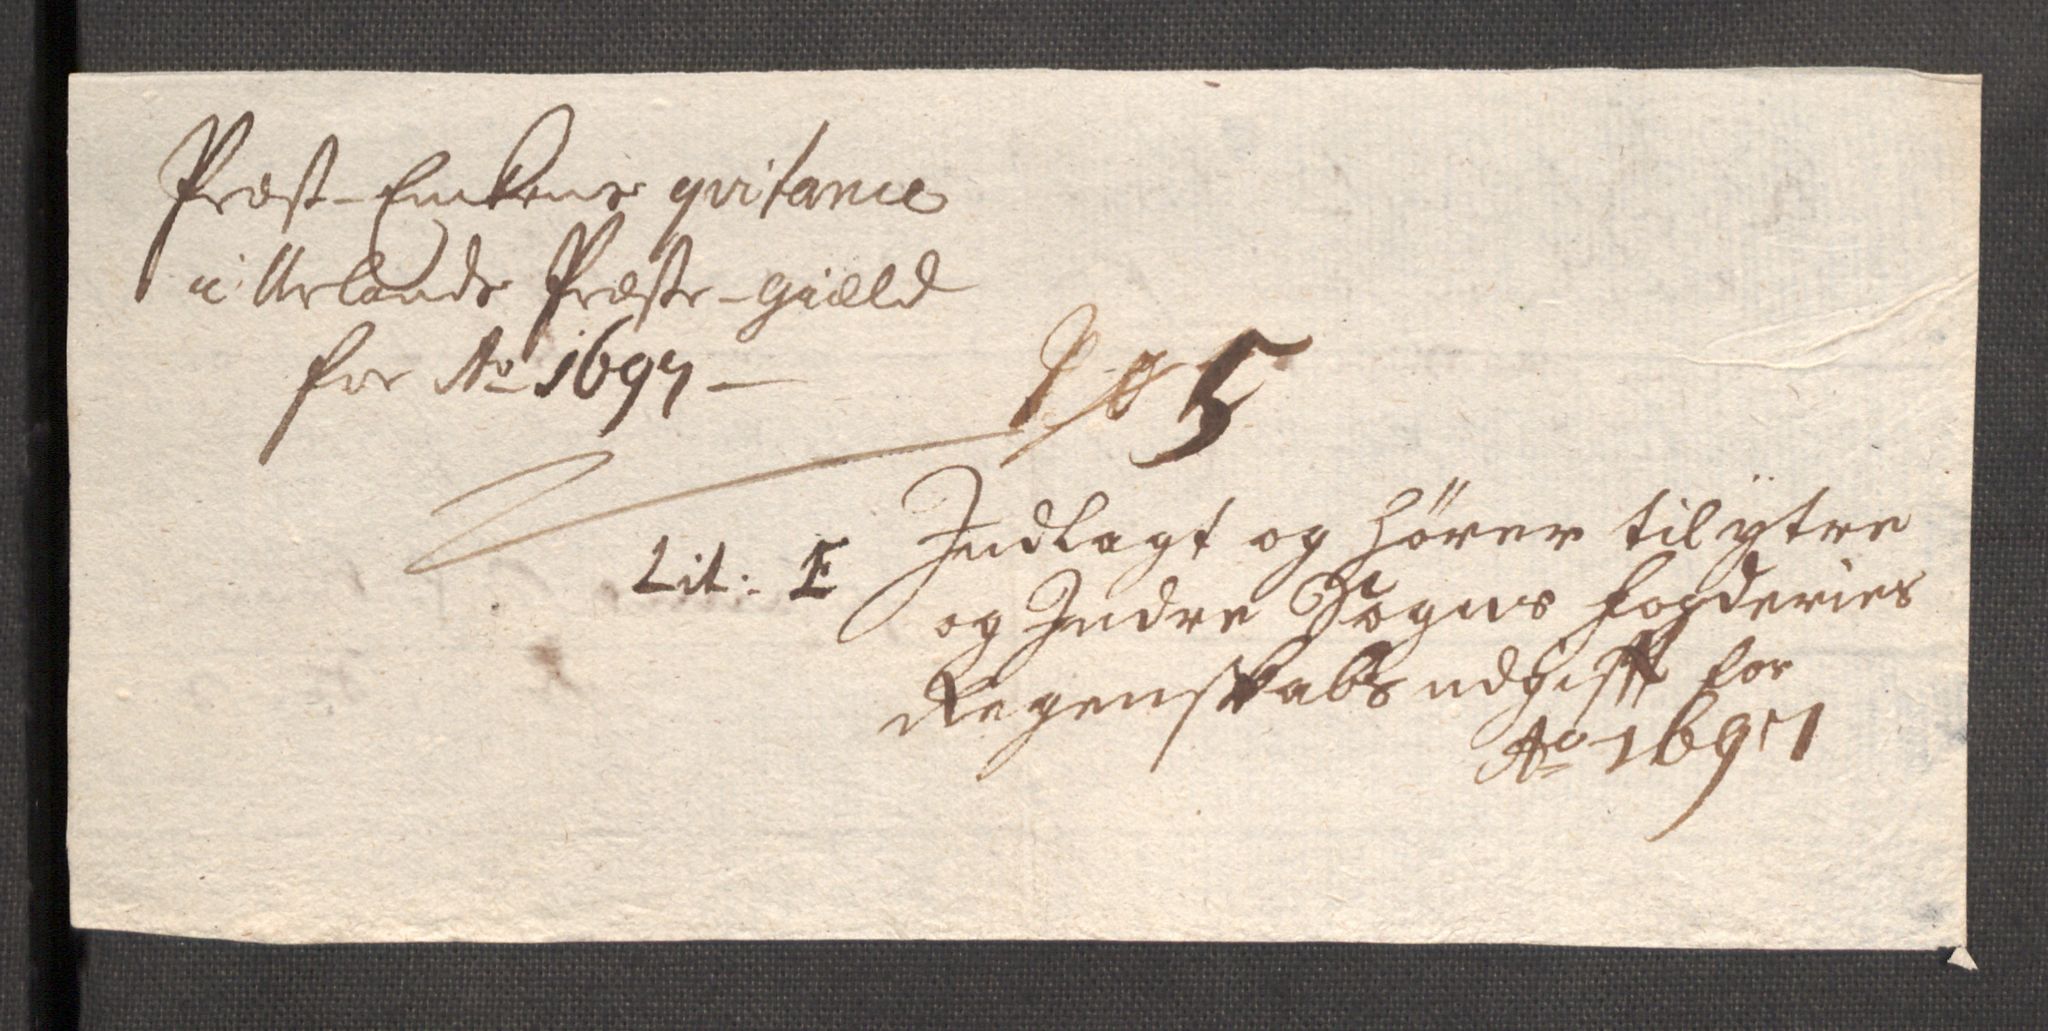 Præst-Enckens qvitance
i Urlands Præste-gield
for Ao 1697 —
No 5
Lit: E
Indlagt og hører til ytre
og Indre Sogns fogderies
Regenskabs udgifft for
Ao 1697